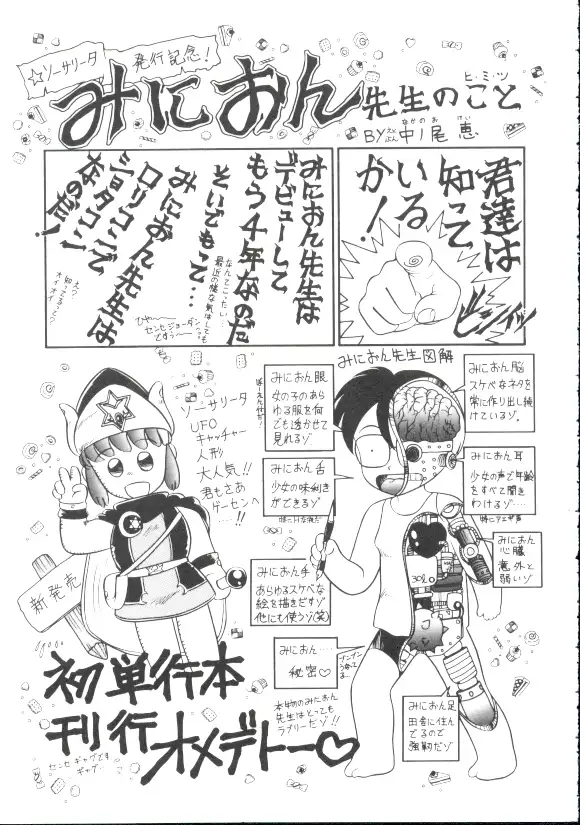 ☆ソーサリータ
発行記念！
みにおん先生のこと
ヒ・ミ・ツ
BY えぶん 中ノ尾 恵
なかのお けい
君達は
知って
いる
か！
ビシィッ
みにおん先生は
デビューして
もう4年なのだ
なんてこったい…
最近の様な気はしても
そいでもって…
みにおん先生は
ロリコンで
ショタコン
なのだ！
ひゃ〜〜
センセジョーダン
ですぅ〜
えっ
知ってるって？
オイオイ
みにおん先生図解
みにおん眼
女の子のあら
ゆる服を何
でも透かせて
見れるゾ
みにおん舌
少女の味利き
ができるゾ
みにおん手
あらゆるスケベな
絵を描きだすゾ
他にも使うゾ(笑)
みにおん…
秘密♡
みにおん脳
スケベなネタを
常に作り出し続
けているゾ
みにおん耳
少女の声で年齢
をすべて聞き
わけるゾ…
特にアエギ声
みにおん
心臓
意外と
弱いゾ
みにおん足
田舎に住ん
でるので
強靭だゾ
ソーサリータ
UFO
キャッチャー
人形
大人気!!
君もさあ
ゲーセンへ
…!!
新発売
本物のみにおん
先生はとっても
ラブリーだゾ!!
初単行本
刊行オメデトー♡
センセ ギャグです
ギャグー